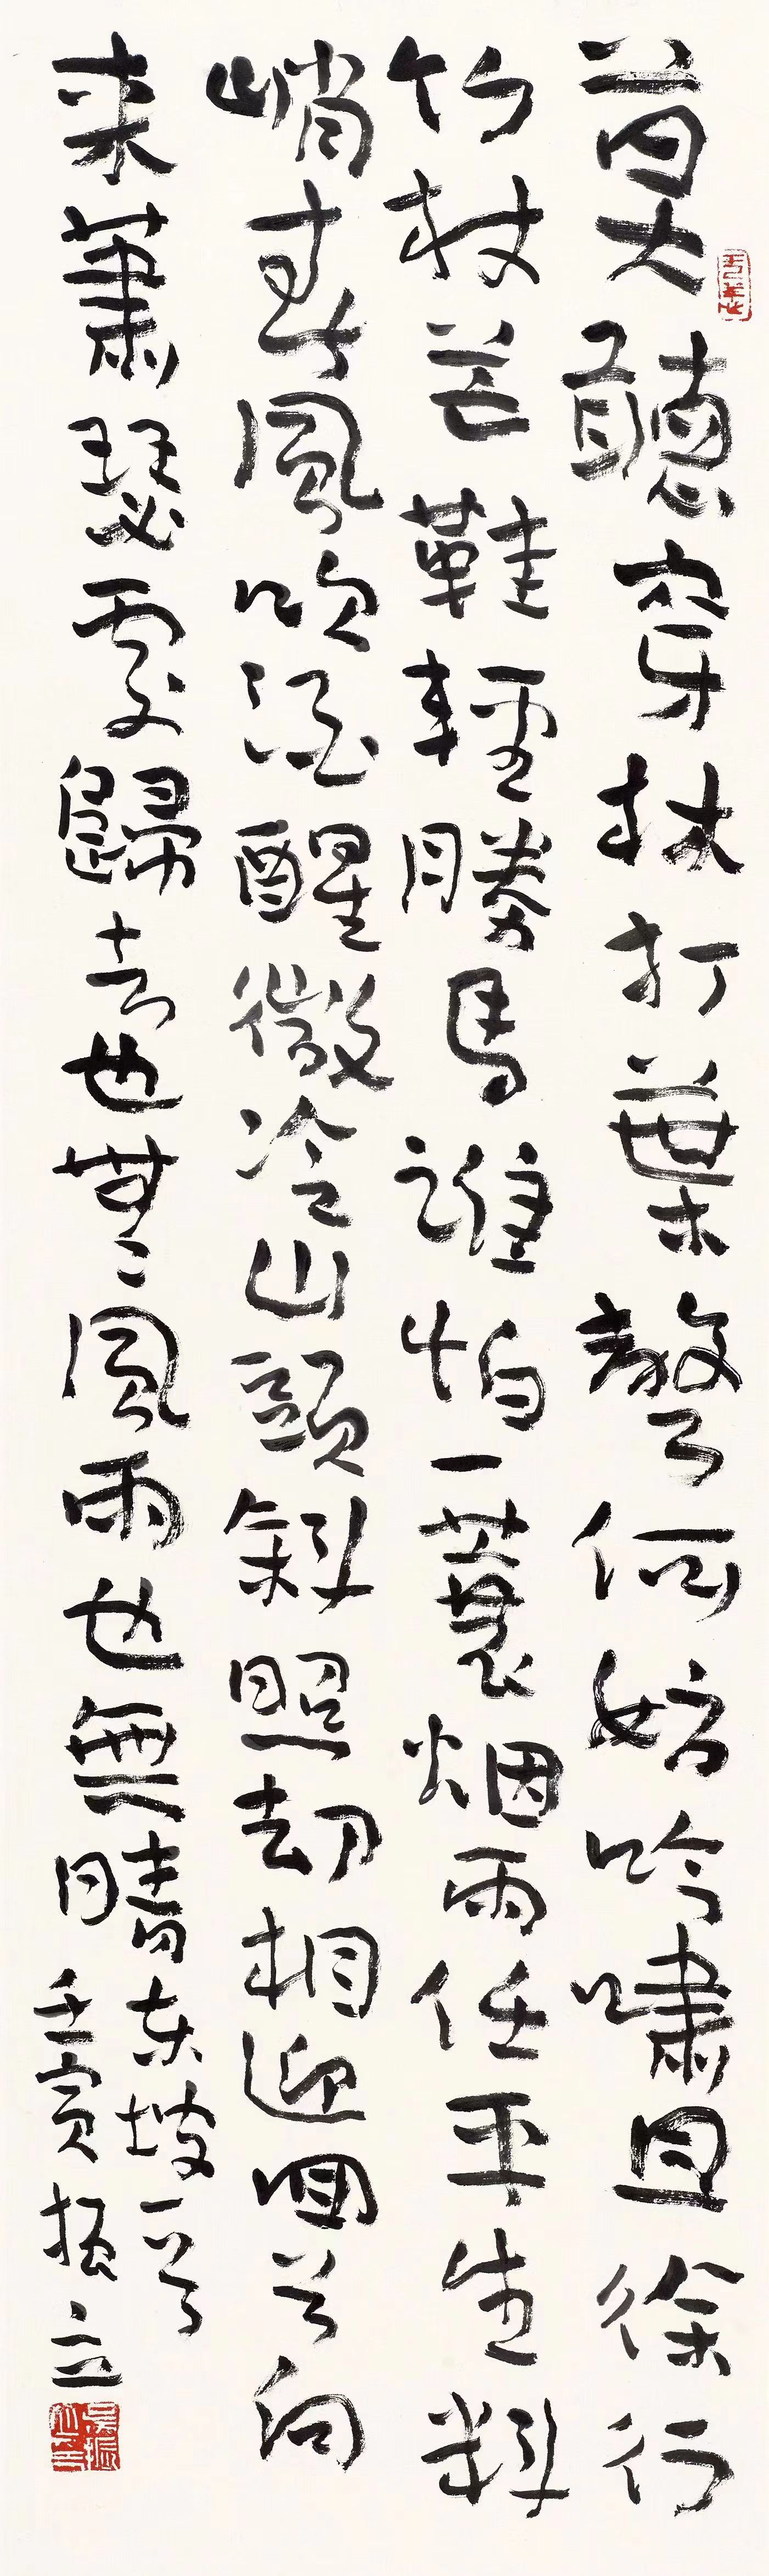 莫聽穿林打葉聲何妨吟嘯且徐行
竹杖芒鞋輕勝馬誰怕一蓑烟雨任平生料
峭春風吹酒醒微冷山頭斜照却相迎回首向
来蕭瑟處歸去也無風雨也無晴
东坡
壬寅振立
吴振立印